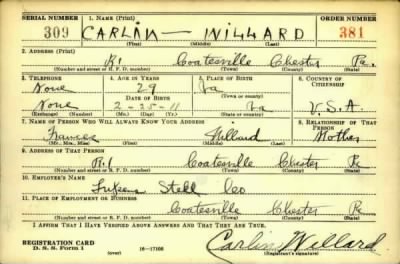 SERIAL NUMBER 1. NAME (Print) ORDER NUMBER
309 CARLIN — WILLARD 381
(First) (Middle) (Last)
2. ADDRESS (Print)
R1 Coatesville Chester Pa.
(Number and street or R. F. D. number) (Town) (County) (State)
3. TELEPHONE 4. AGE IN YEARS 5. PLACE OF BIRTH 6. COUNTRY OF CITIZENSHIP
None 29 Va
DATE OF BIRTH (Town or county)
None 2-25-11 Va U.S.A.
(Exchange) (Number) (Mo.) (Day) (Yr.) (State or country)
7. NAME OF PERSON WHO WILL ALWAYS KNOW YOUR ADDRESS 8. RELATIONSHIP OF THAT PERSON
Frances Willard Mother
(Mr., Mrs., Miss) (First) (Middle) (Last)
9. ADDRESS OF THAT PERSON
R.1 Coatesville Chester Pa
(Number and street or R. F. D. number) (Town) (County) (State)
10. EMPLOYER'S NAME
Stell Co
11. PLACE OF EMPLOYMENT OR BUSINESS
Coatesville Chester Pa
(Number and street or R. F. D. number) (Town) (County) (State)
I AFFIRM THAT I HAVE VERIFIED ABOVE ANSWERS AND THAT THEY ARE TRUE.
REGISTRATION CARD Carlin Willard
D. S. S. Form 1 (over) 16—17105 (Registrant's signature)